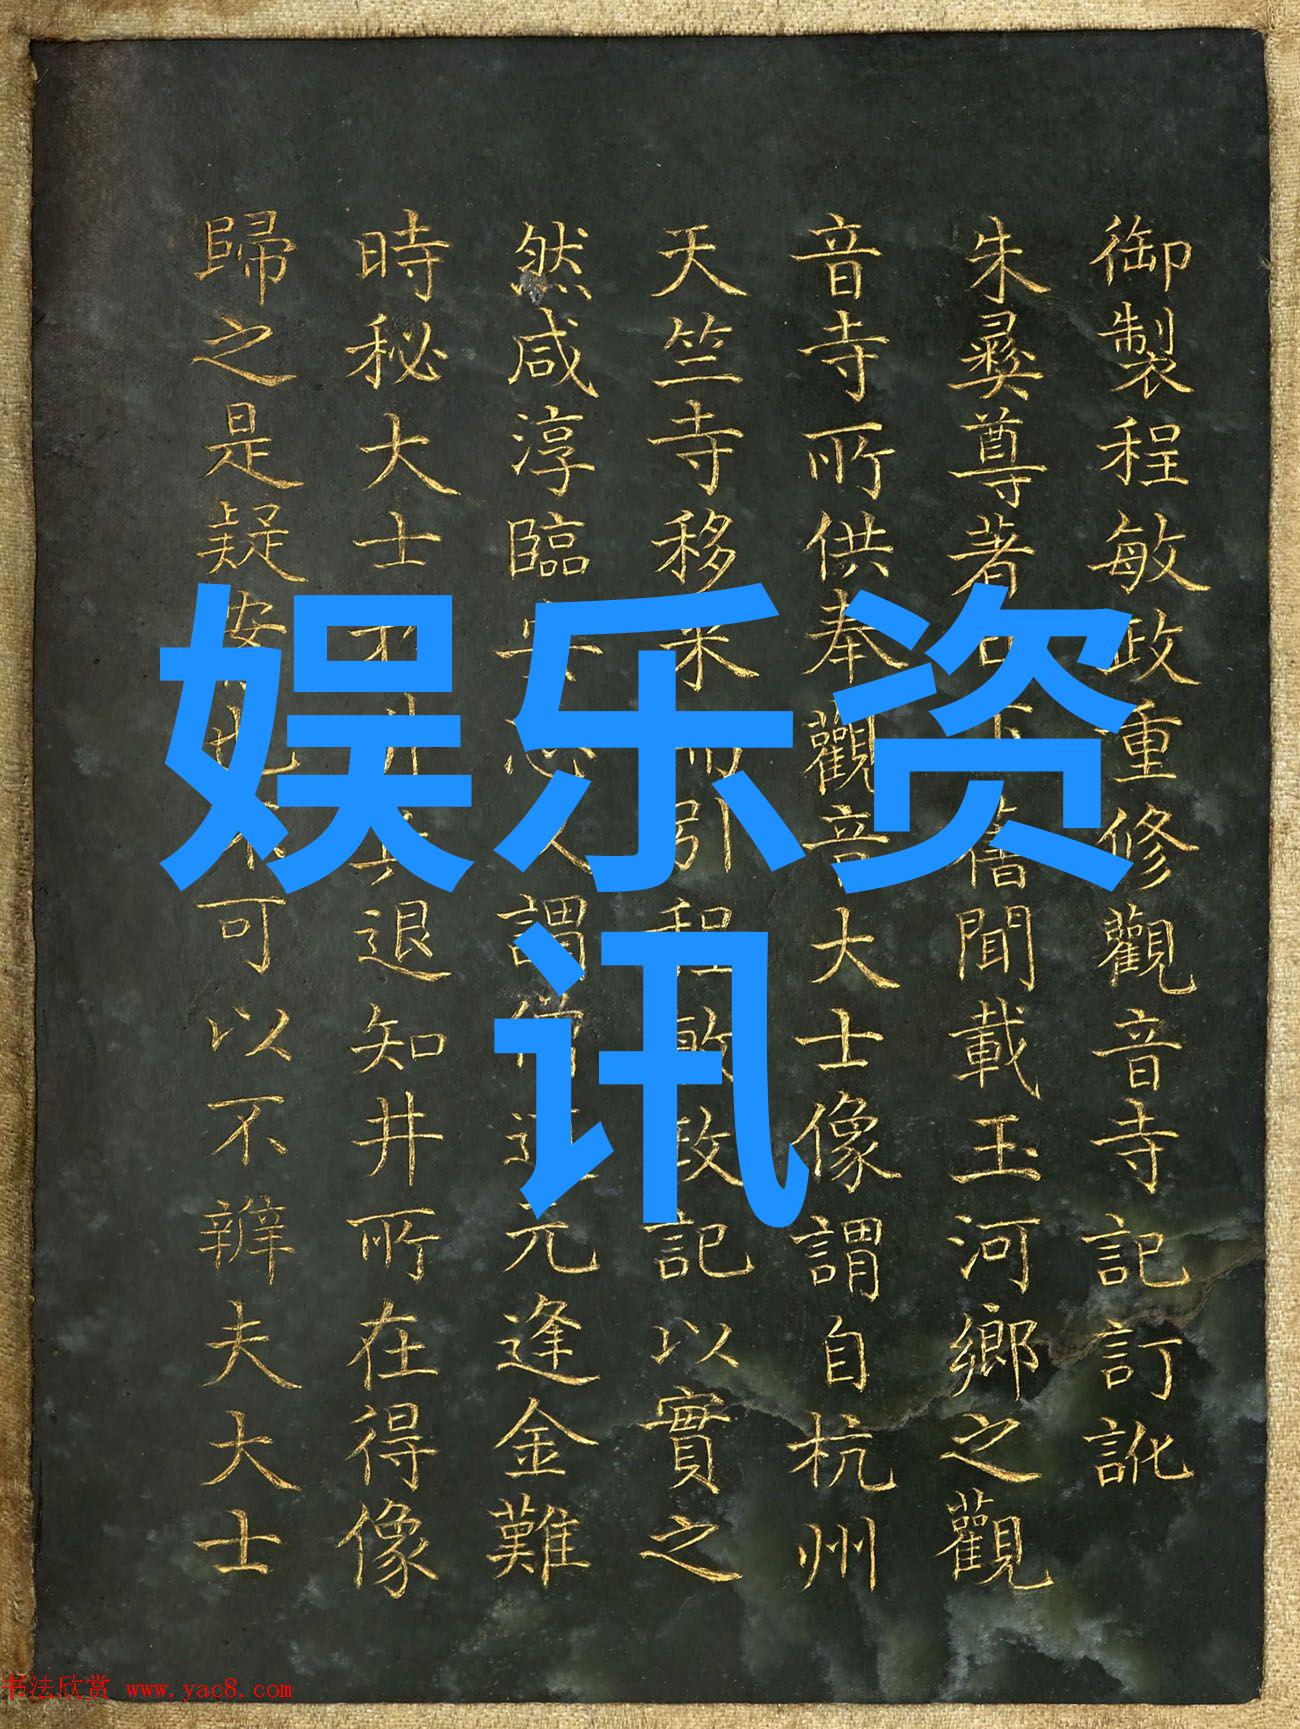 御製程敏政重修觀音寺記訂訛
朱彝尊著日下舊聞載玉河鄉之觀
音寺所供奉觀音大士像謂自杭州
天竺寺移來而引程敏政記以實之
然咸淳臨安志人謂僧道元逢金難
時秘大士於井兵退知井所在得像
歸之是疑安此不可以不辨夫大士
娱乐资
讯
书法欣赏 www.yac8.com